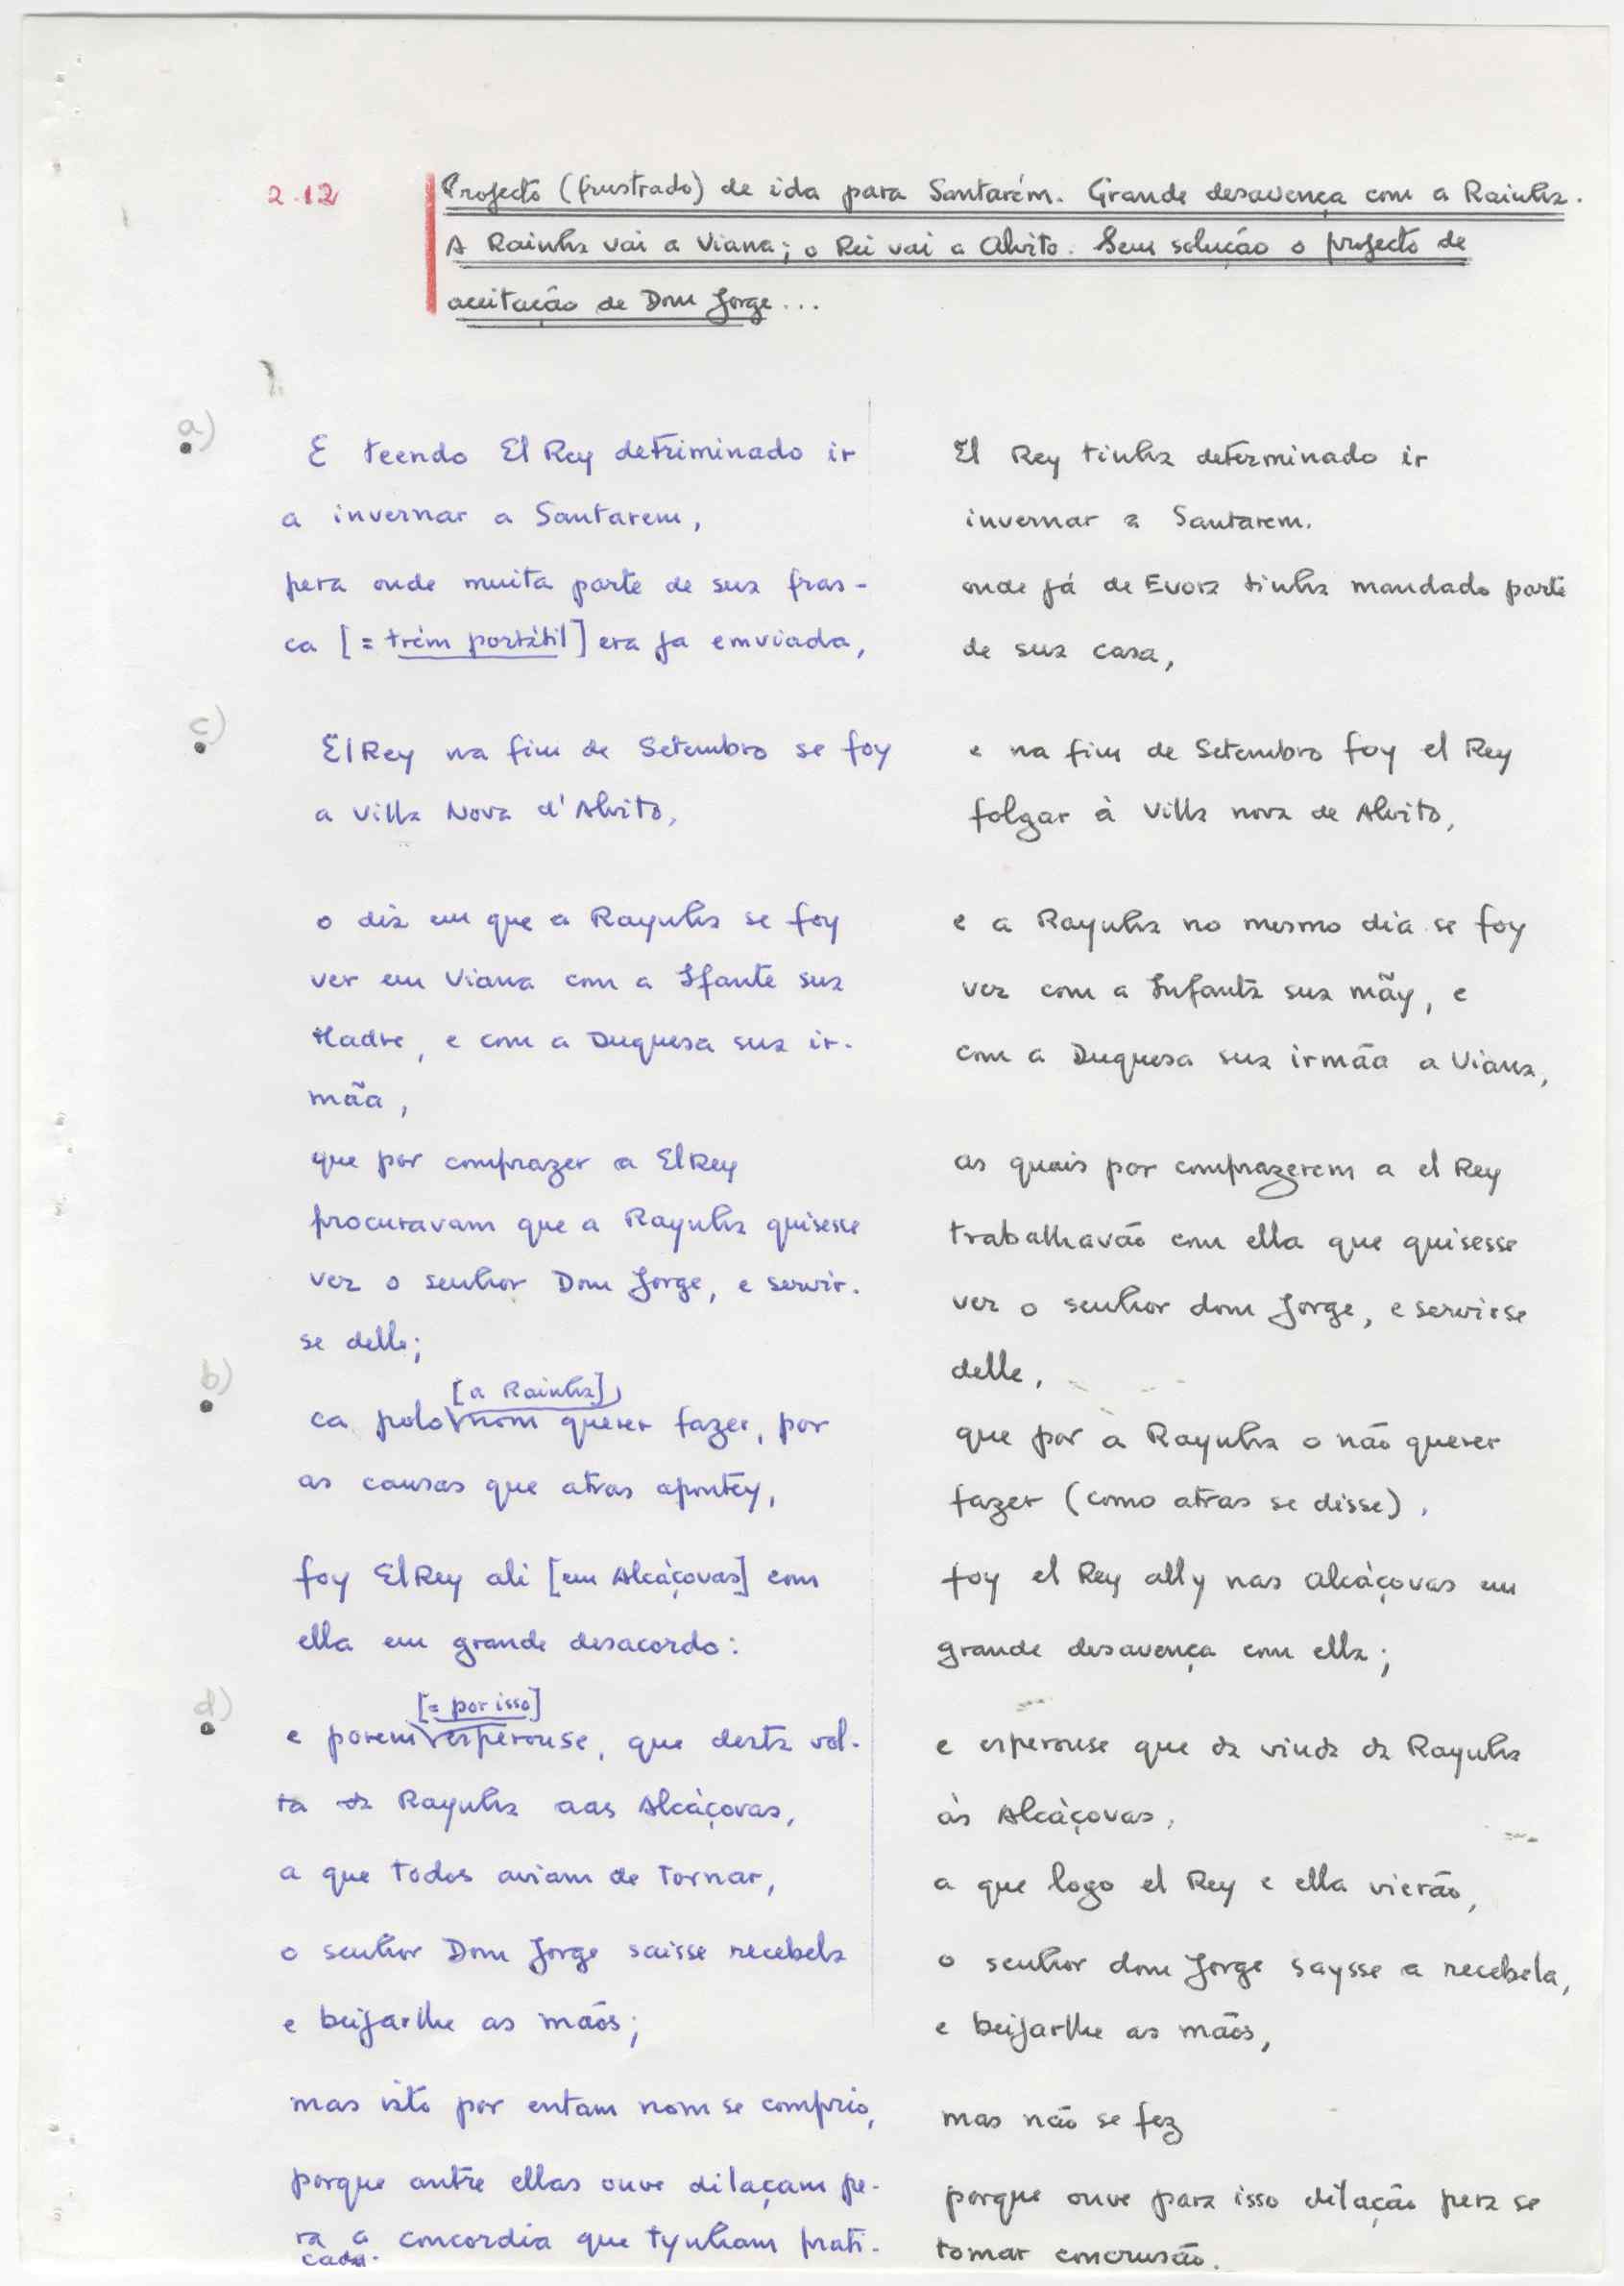 2.12
Projecto (frustrado) de ida para Santarém. Grande desavença com a Rainha.
A Rainha vai a Viana; o Rei vai a Alvito. Sem solução o projecto de
aceitação de Dom Jorge...
a)
E teendo El Rey detriminado ir
a invernar a Santarem,
pera onde muita parte de sua fras-
ca [= trém portátil] era ja emviada,
c)
El Rey na fim de Setembro se foy
a Villa Nova d'Alvito,
o dia em que a Raynha se foy
ver em Viana com a Ifante sua
Madre, e com a Duquesa sua ir-
mãa,
que por comprazer a El Rey
procuravam que a Raynha quisesse
ver o senhor Dom Jorge, e servir-
se delle;
b)
[a Rainha]
ca polo nom querer fazer, por
as causas que atras apontey,
foy El Rey ali [em Alcáçovas] com
ella em grande desacordo:
d)
[= por isso]
e porem esperouse, que desta vol-
ta da Raynha aas Alcáçovas,
a que todos aviam de tornar,
o senhor Dom Jorge saisse recebela
e beijarlhe as mãos;
mas isto por entam nom se comprio,
porque antre ellas ouve dilaçam pe-
ra a concordia que tynham prati-
cada.
El Rey tinha determinado ir
invernar a Santarem.
onde já de Evora tinha mandado parte
de sua casa,
e na fim de Setembro foy el Rey
folgar à Villa nova de Alvito,
e a Raynha no mesmo dia se foy
ver com a Infanta sua mãy, e
com a Duquesa sua irmãa a Viana,
as quais por comprazerem a el Rey
trabalhavão com ella que quisesse
ver o senhor dom Jorge, e servirse
delle,
que por a Raynha o não querer
fazer (como atras se disse),
foy el Rey ally nas alcáçovas em
grande desavença com ella;
e esperouse que da vinda da Raynha
às Alcáçovas,
a que logo el Rey e ella vierão,
o senhor dom Jorge saysse a recebela,
e beijarlhe as mãos,
mas não se fez
porque ouve para isso dilação pera se
tomar concrusão.